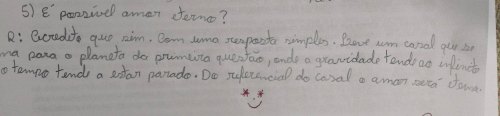 5) É possível amor eterno?
R: Acredito que sim. Com uma resposta simples. Leve um casal que se
ma para o planeta da primeira questão, onde a gravidade tende ao infinito
o tempo tende a estar parado. Do referencial do casal o amor será eterno.